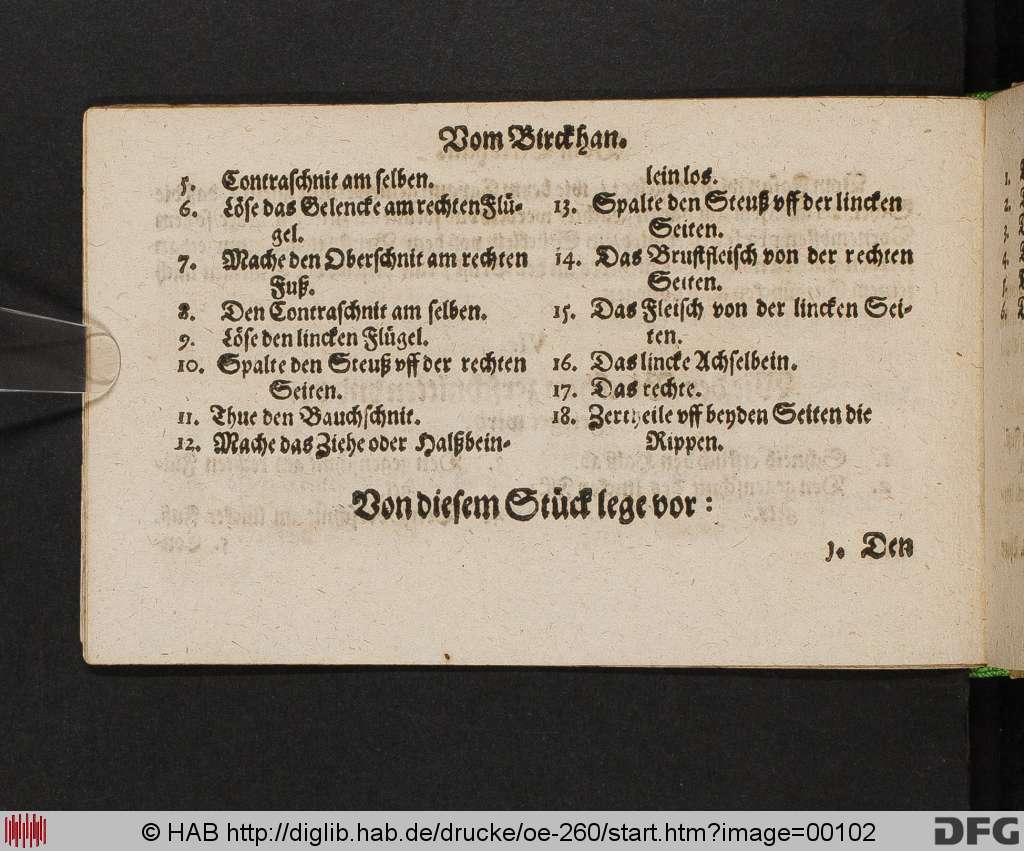 Vom Birckhan.
5. Contraschnit am selben.
6. Löse das Gelencke am rechten Flü-
gel.
7. Mache den Oberschnit am rechten
Fuß.
8. Den Contraschnit am selben.
9. Löse den lincken Flügel.
10. Spalte den Steuß vff der rechten
Seiten.
11. Thue den Bauchschnit.
12. Mache das Ziehe oder Halßbein-
lein los.
13. Spalte den Steuß vff der lincken
Seiten.
14. Das Brustfleisch von der rechten
Seiten.
15. Das Fleisch von der lincken Sei-
ten.
16. Das lincke Achselbein.
17. Das rechte.
18. Zertheile vff beyden Seiten die
Rippen.
Von diesem Stück lege vor:
1. Den
© HAB http://diglib.hab.de/drucke/oe-260/start.htm?image=00102
DFG